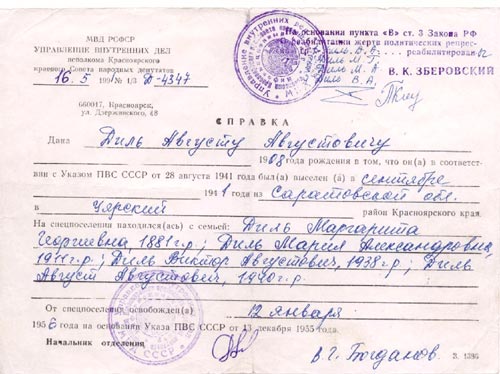 МВД РСФСР
УПРАВЛЕНИЕ ВНУТРЕННИХ ДЕЛ
исполкома Красноярского
краевого Совета народных депутатов
16. 5 199 № 1/3 Д-4347
660017, Красноярск,
ул. Дзержинского, 18
На основании пункта «В» ст. 3 Закона РФ
О реабилитации жертв политических репрес-
реабилитирован
Диль М. Г.
Диль М. А.
Диль В. А.
В. К. ЗБЕРОВСКИЙ
СПРАВКА
Дана Диль Августу Августовичу
1908 года рождения в том, что он(а) в соответст-
вии с Указом ПВС СССР от 28 августа 1941 года был(а) выселен (а) в сентябре
1941 года из Саратовской обл.
в Уярский район Красноярского края.
На спецпоселении находился(ась) с семьей: Диль Маргарита
Георгиевна, 1881г.р.; Диль Мария Александровна,
1911г.р.; Диль Виктор Августович, 1938г.р.; Диль
Август Августович, 1940г.р.
От спецпоселения освобожден(а) 12 января
1956 года на основании Указа ПВС СССР от 13 декабря 1955 года.
Начальник отделения
В.Г. Богданов.
З. 1386